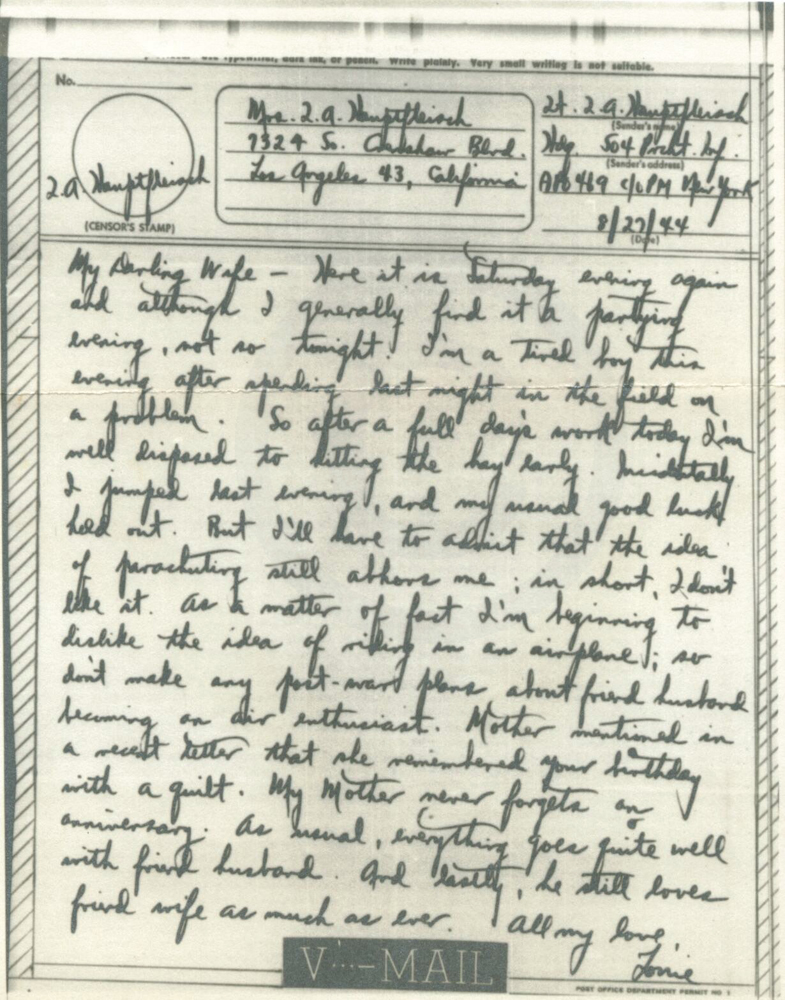 use typewriter, dark ink, or pencil. Write plainly. Very small writing is not suitable.
No.
Mrs. L. A. Hauptfleisch
7324 So. Crenshaw Blvd.
Los Angeles 43, California
Lt. L. A. Hauptfleisch
(Sender's name)
Hdq. 504 Prcht. Inf.
(Sender's address)
APO 469 c/o PM New York
8/27/44
(Date)
L. A. Hauptfleisch
(CENSOR'S STAMP)
My Darling Wife – Here it is Saturday evening again
and although I generally find it a partying
evening, not so tonight. I'm a tired boy this
evening after spending last night in the field on
a problem. So after a full day's work today I'm
well disposed to hitting the hay early. Incidentally
I jumped last evening, and my usual good luck
held out. But I'll have to admit that the idea
of parachuting still abhors me; in short, I don't
like it. As a matter of fact I'm beginning to
dislike the idea of riding in an airplane; so
don't make any post-war plans about friend husband
becoming an air enthusiast. Mother mentioned in
a recent letter that she remembered your birthday
with a quilt. My Mother never forgets an
anniversary. As usual, everything goes quite well
with friend husband. And lastly, he still loves
friend wife as much as ever. All my love,
Louie
V···–MAIL
POST OFFICE DEPARTMENT PERMIT NO 1